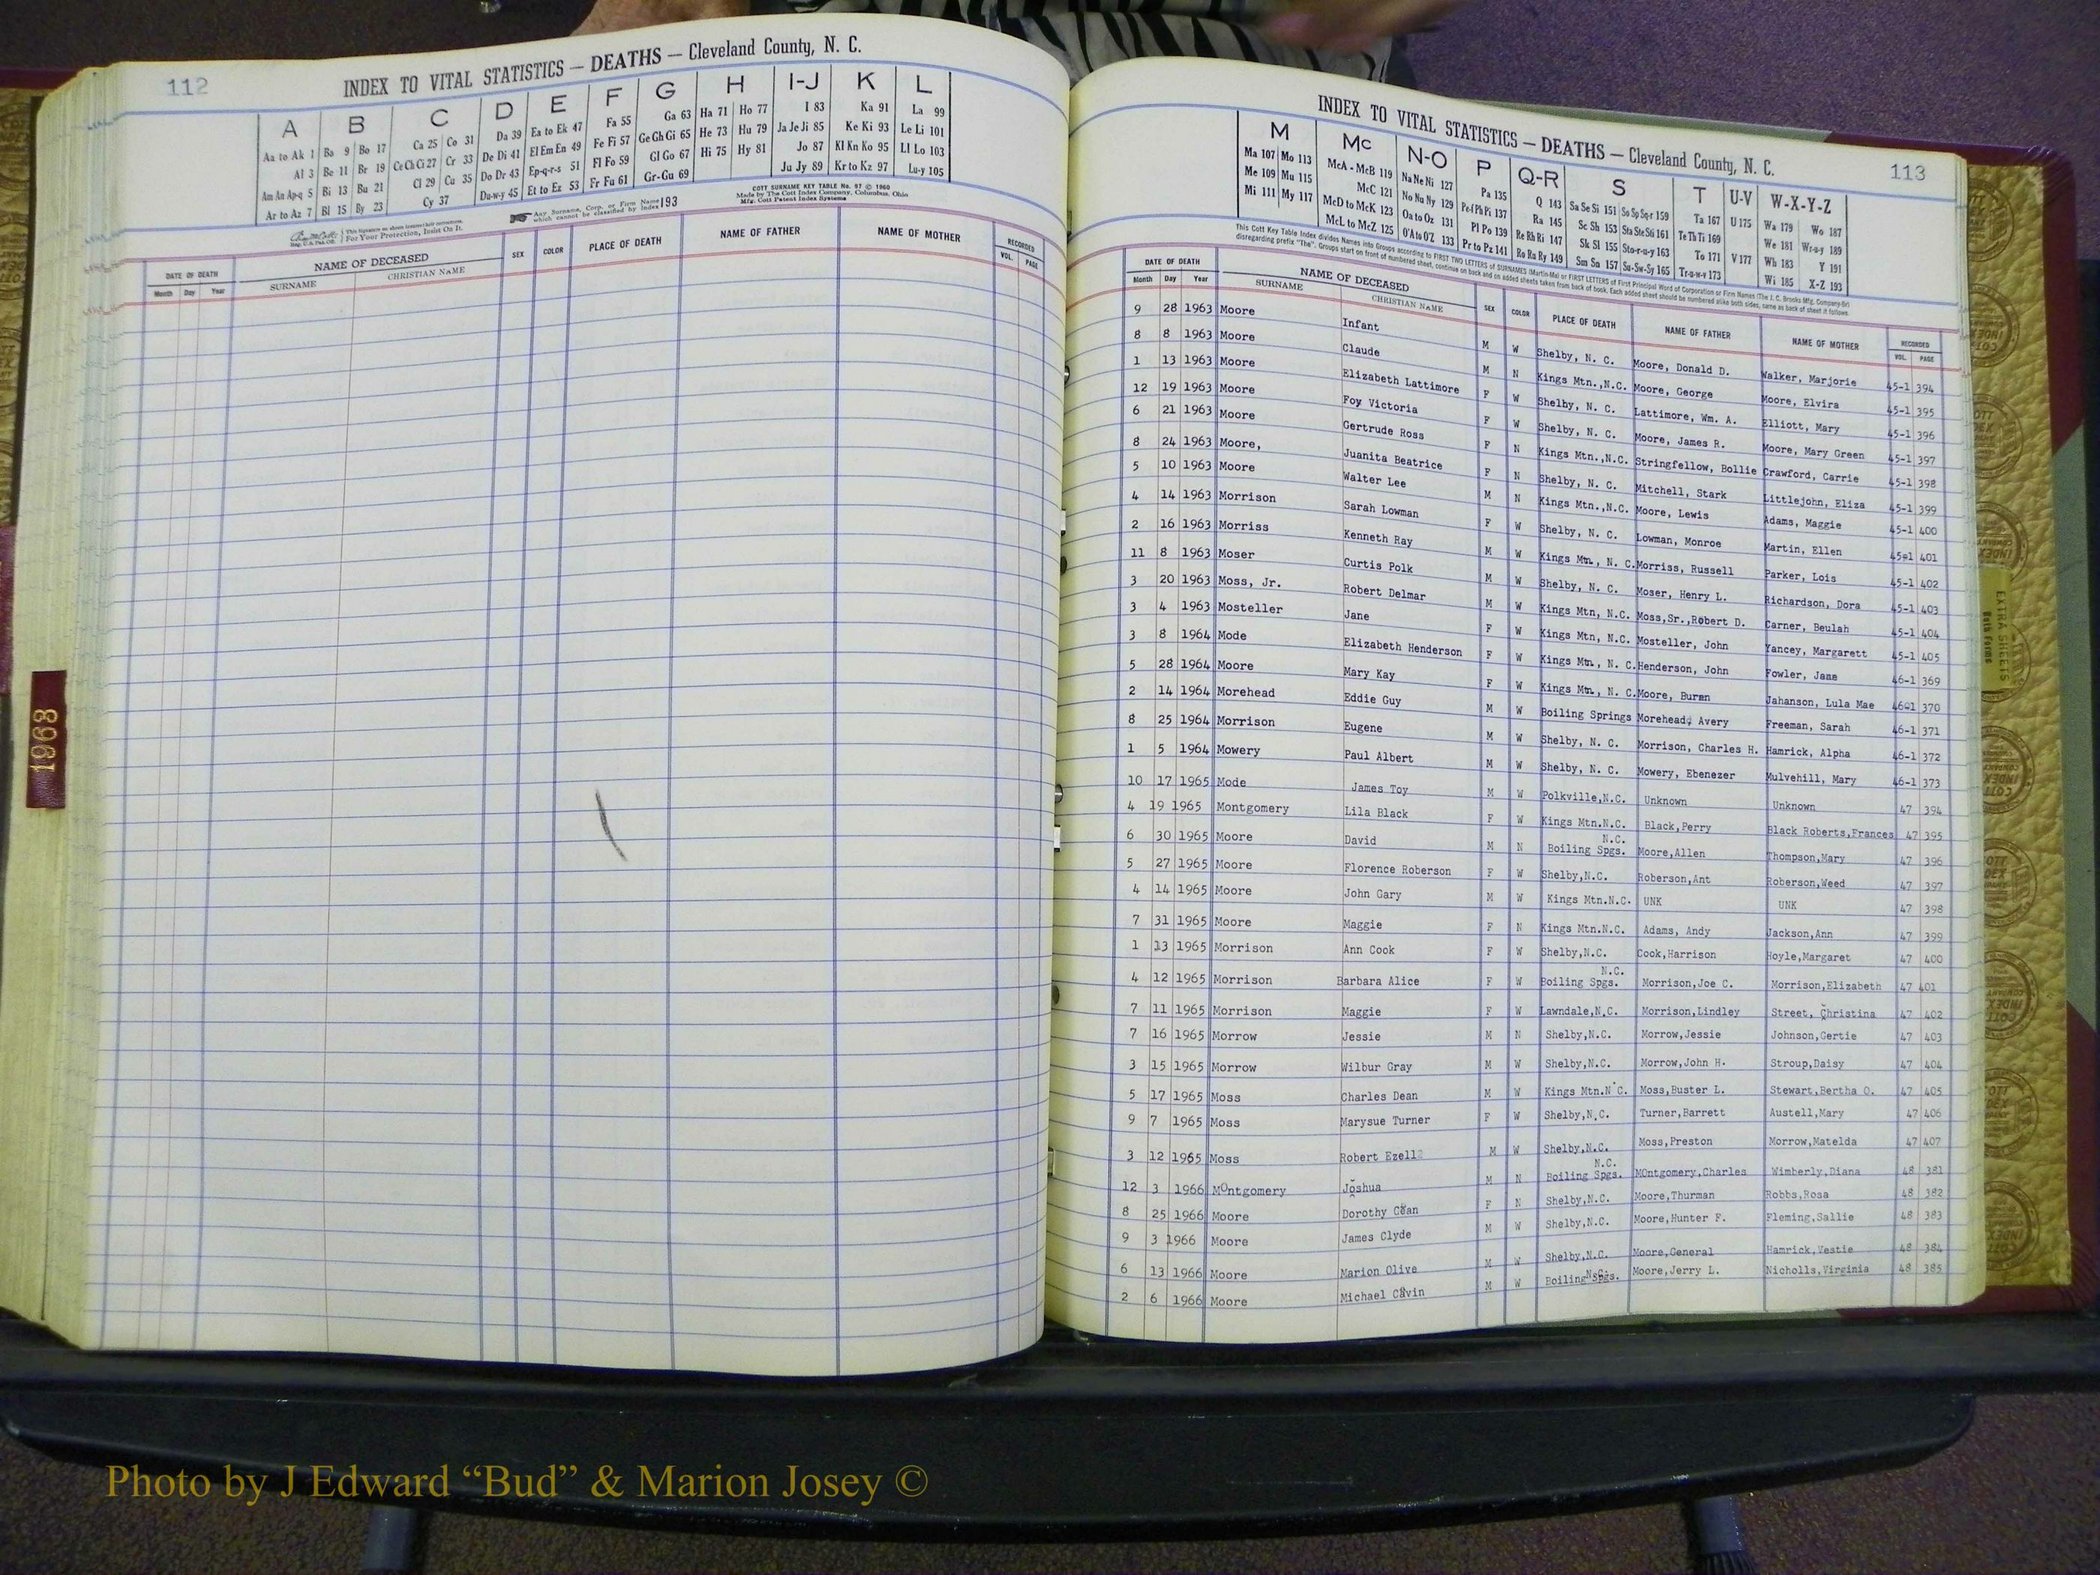 112
INDEX TO VITAL STATISTICS — DEATHS — Cleveland County, N. C.
A B C D E F G H I-J K L
Aa to Ak 1 Ba 9 Bo 17 Ca 25 Co 31 Da 39 Ea to Ek 47 Fa 55 Ga 63 Ha 71 Ho 77 I 83 Ka 91 La 99
Al 3 Be 11 Br 19 Ce Ch Ci 27 Cr 33 De Di 41 El Em En 49 Fe Fi 57 Ge Gh Gi 65 He 73 Hu 79 Ja Je Ji 85 Ke Ki 93 Le Li 101
Am An Ap-q 5 Bi 13 Bu 21 Cl 29 Cu 35 Do Dr 43 Ep-q-r-s 51 Fl Fo 59 Gl Go 67 Hi 75 Hy 81 Jo 87 Kl Kn Ko 95 Ll Lo 103
Ar to Az 7 Bl 15 By 23 Cy 37 Du-w-y 45 Et to Ez 53 Fr Fu 61 Gr-Gu 69 Ju Jy 89 Kr to Kz 97 Lu-y 105
COTT SURNAME KEY TABLE No. 97 © 1960
Made by The Cott Index Company, Columbus, Ohio
Mfg. Cott Patent Index Systems
Any Surname, Corp. or Firm Name which cannot be classified by Index 193
For Your Protection, Insist On It.
DATE OF DEATH NAME OF DECEASED SEX COLOR PLACE OF DEATH NAME OF FATHER NAME OF MOTHER RECORDED
Month Day Year SURNAME CHRISTIAN NAME VOL. PAGE
1968
113
INDEX TO VITAL STATISTICS — DEATHS — Cleveland County, N. C.
M Mc N-O P Q-R S T U-V W-X-Y-Z
Ma 107 Mo 113 McA - McB 119 Na Ne Ni 127 Pa 135 Q 143 Sa Se Si 151 So Sp Sq-r 159 Ta 167 U 175 Wa 179 Wo 187
Me 109 Mu 115 McC 121 No Nu Ny 129 Pe-f Ph Pi 137 Ra 145 Sc Sh 153 Sta Ste Sti 161 Te Th Ti 169 We 181 Wr-u-y 189
Mi 111 My 117 McD to McK 123 Oa to Oz 131 Pl Po 139 Re Rh Ri 147 Sk Sl 155 Sto-r-u-y 163 To 171 V 177 Wh 183 Y 191
McL to McZ 125 O'A to O'Z 133 Pr to Pz 141 Ro Ru Ry 149 Sm Sn 157 Su-Sw-Sy 165 Tr-u-w-y 173 Wi 185 X-Z 193
This Cott Key Table Index divides Names into Groups according to FIRST TWO LETTERS of SURNAMES (Martin-Ma) or FIRST LETTERS of First Principal Word of Corporation or Firm Names (The J. C. Brooks Mfg. Company-Br)
disregarding prefix "The". Groups start on front of numbered sheet, continue on back and on added sheets taken from back of book. Each added sheet should be numbered alike both sides, same as back of sheet it follows.
DATE OF DEATH NAME OF DECEASED SEX COLOR PLACE OF DEATH NAME OF FATHER NAME OF MOTHER RECORDED
Month Day Year SURNAME CHRISTIAN NAME VOL. PAGE
9 28 1963 Moore Infant M W Shelby, N. C. Moore, Donald D. Walker, Marjorie 45-1 394
8 8 1963 Moore Claude M N Kings Mtn.,N.C. Moore, George Moore, Elvira 45-1 395
1 13 1963 Moore Elizabeth Lattimore F W Shelby, N. C. Lattimore, Wm. A. Elliott, Mary 45-1 396
12 19 1963 Moore Foy Victoria F W Shelby, N. C. Moore, James R. Moore, Mary Green 45-1 397
6 21 1963 Moore Gertrude Ross F N Kings Mtn.,N.C. Stringfellow, Bollie Crawford, Carrie 45-1 398
8 24 1963 Moore, Juanita Beatrice F N Shelby, N. C. Mitchell, Stark Littlejohn, Eliza 45-1 399
5 10 1963 Moore Walter Lee M N Kings Mtn.,N.C. Moore, Lewis Adams, Maggie 45-1 400
4 14 1963 Morrison Sarah Lowman F W Shelby, N. C. Lowman, Monroe Martin, Ellen 45-1 401
2 16 1963 Morriss Kenneth Ray M W Kings Mtn, N. C. Morriss, Russell Parker, Lois 45-1 402
11 8 1963 Moser Curtis Polk M W Shelby, N. C. Moser, Henry L. Richardson, Dora 45-1 403
3 20 1963 Moss, Jr. Robert Delmar M W Kings Mtn, N.C. Moss,Sr.,Robert D. Carner, Beulah 45-1 404
3 4 1963 Mosteller Jane F W Kings Mtn, N.C. Mosteller, John Yancey, Margarett 45-1 405
3 8 1964 Mode Elizabeth Henderson F W Kings Mtn, N. C. Henderson, John Fowler, Jane 46-1 369
5 28 1964 Moore Mary Kay F W Kings Mtn, N. C. Moore, Buren Jahanson, Lula Mae 46-1 370
2 14 1964 Morehead Eddie Guy M W Boiling Springs Morehead, Avery Freeman, Sarah 46-1 371
8 25 1964 Morrison Eugene M W Shelby, N. C. Morrison, Charles H. Hamrick, Alpha 46-1 372
1 5 1964 Mowery Paul Albert M W Shelby, N. C. Mowery, Ebenezer Mulvehill, Mary 46-1 373
10 17 1965 Mode James Toy M W Polkville,N.C. Unknown Unknown 47 394
4 19 1965 Montgomery Lila Black F W Kings Mtn.N.C. Black,Perry Black Roberts,Frances 47 395
6 30 1965 Moore David M N Boiling Spgs. N.C. Moore,Allen Thompson,Mary 47 396
5 27 1965 Moore Florence Roberson F W Shelby,N.C. Roberson,Ant Roberson,Weed 47 397
4 14 1965 Moore John Gary M W Kings Mtn.N.C. UNK UNK 47 398
7 31 1965 Moore Maggie F N Kings Mtn.N.C. Adams, Andy Jackson,Ann 47 399
1 13 1965 Morrison Ann Cook F W Shelby,N.C. Cook,Harrison Hoyle,Margaret 47 400
4 12 1965 Morrison Barbara Alice F W Boiling Spgs. N.C. Morrison,Joe C. Morrison,Elizabeth 47 401
7 11 1965 Morrison Maggie F W Lawndale,N.C. Morrison,Lindley Street, Christina 47 402
7 16 1965 Morrow Jessie M N Shelby,N.C. Morrow,Jessie Johnson,Gertie 47 403
3 15 1965 Morrow Wilbur Gray M W Shelby,N.C. Morrow,John H. Stroup,Daisy 47 404
5 17 1965 Moss Charles Dean M W Kings Mtn.N.C. Moss,Buster L. Stewart,Bertha O. 47 405
9 7 1965 Moss Marysue Turner F W Shelby,N.C. Turner,Barrett Austell,Mary 47 406
3 12 1965 Moss Robert Ezell M W Shelby,N.C. Moss,Preston Morrow,Matelda 47 407
12 3 1966 MOntgomery Joshua M N Boiling Spgs. N.C. MOntgomery,Charles Wimberly,Diana 48 381
8 25 1966 Moore Dorothy Coan F N Shelby,N.C. Moore,Thurman Robbs,Rosa 48 382
9 3 1966 Moore James Clyde M W Shelby,N.C. Moore,Hunter F. Fleming,Sallie 48 383
6 13 1966 Moore Marion Olive M W Shelby,N.C. Moore,General Hamrick,Vestie 48 384
2 6 1966 Moore Michael Cavin M W Boiling Spgs. N.C. Moore,Jerry L. Nicholls,Virginia 48 385
EXTRA SHEETS
Photo by J Edward “Bud” & Marion Josey ©